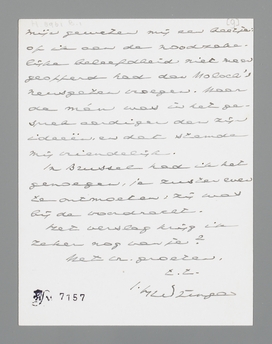 (9)
mijn geweten mij een beetje
of ik aan de noodzake-
lijke beleefdheid niet mee
geofferd had dan Moloch's
neusgaten vroegen. Maar
de man was in het ge-
sprek aardiger dan zijn
ideeën en dat stemde
mij vriendelijk.
In Brussel had ik het
genoegen, je zuster even
te ontmoeten; zij was
bij de voordracht.
Het verslag krijg ik
zeker nog van je?
Met vr. groeten,
t.t.
J. Huizinga
7157